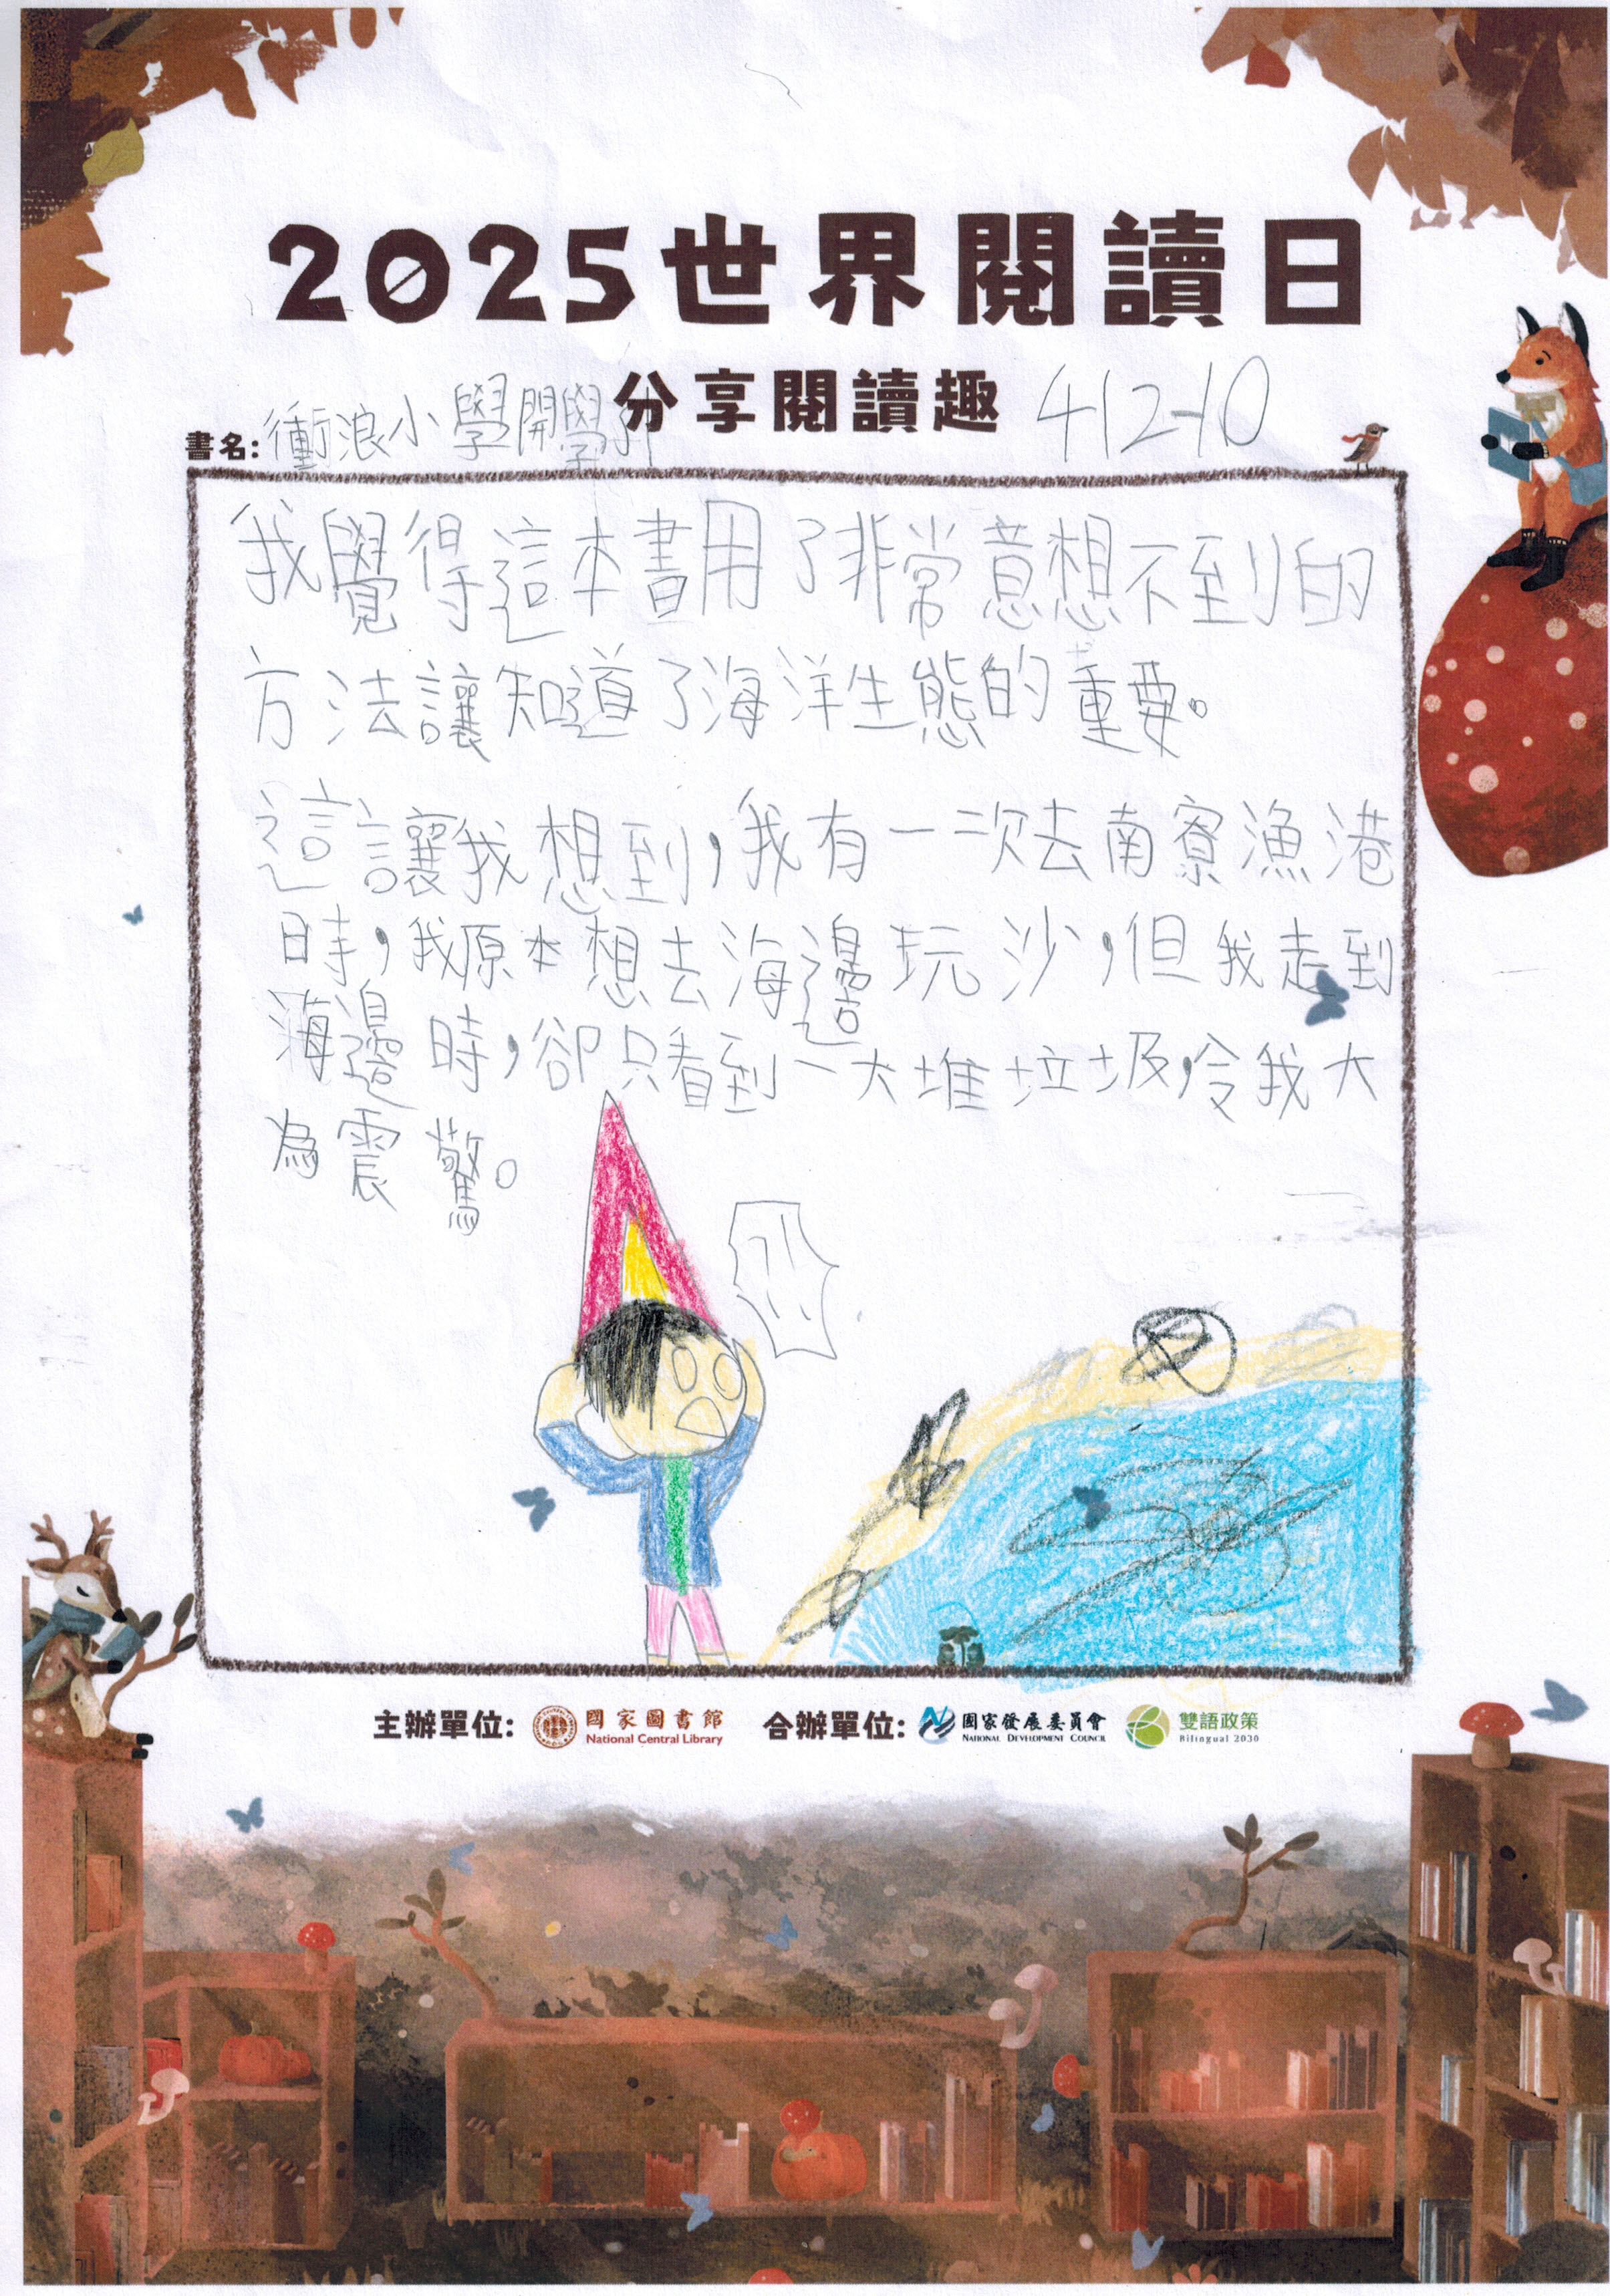 2025世界閱讀日
分享閱讀趣
412-10
書名: 衝浪小學開學了
我覺得這本書用了非常意想不到的
方法讓知道了海洋生態的重要。
這讓我想到,我有一次去南寮漁港
時,我原本想去海邊玩沙,但我走到
海邊時,卻只看到一大堆垃圾,令我大
為震驚。
主辦單位: 國家圖書館 National Central Library 合辦單位: 國家發展委員會 NATIONAL DEVELOPMENT COUNCIL 雙語政策 Bilingual 2030